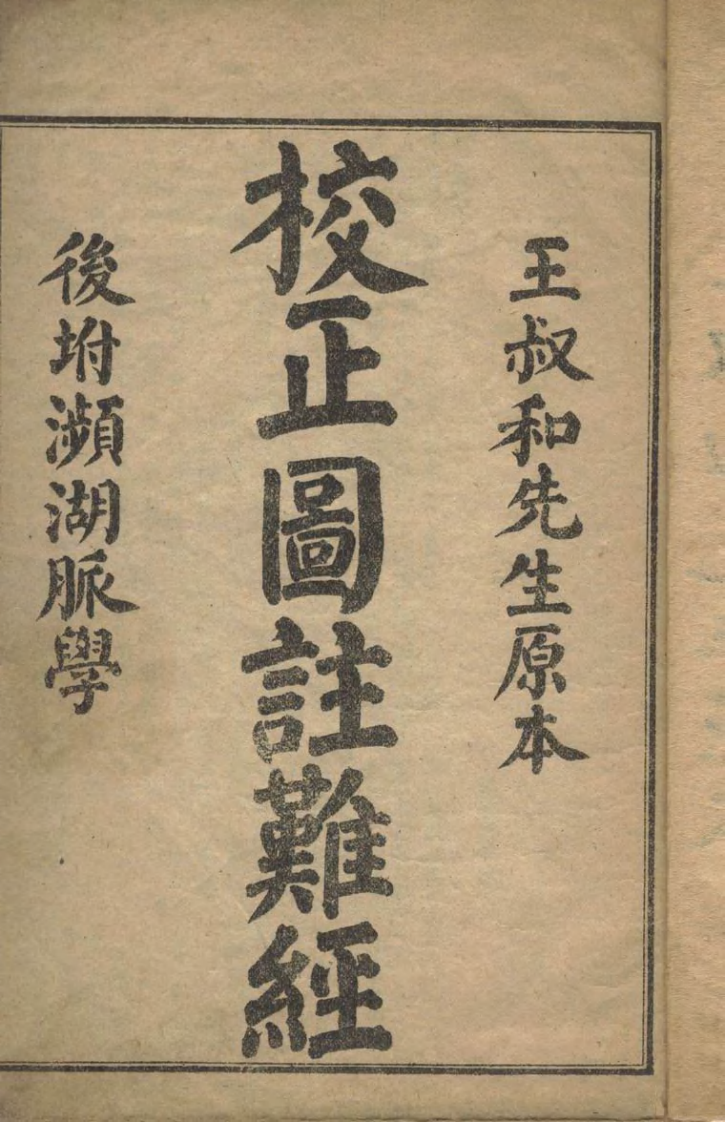 王叔和先生原本
校正圖註難經
後坿瀕湖脈學